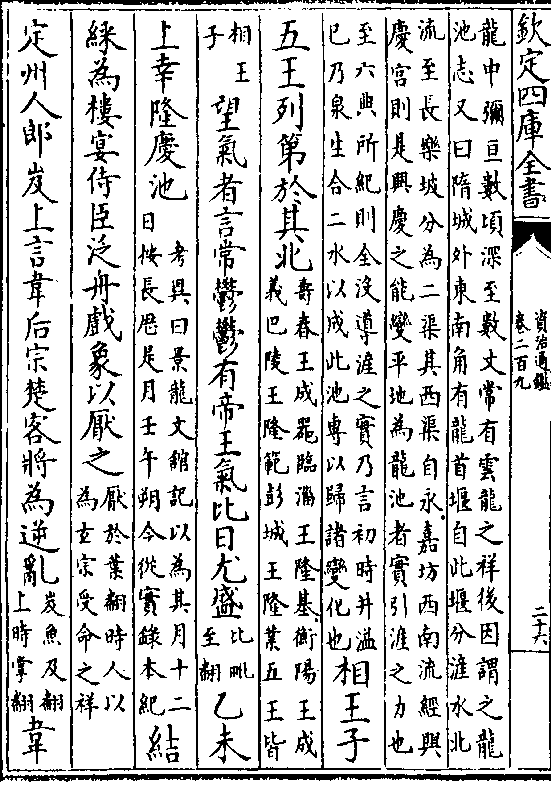 欽定四庫全書
資治通鑑
卷二百九
二十六
龍中彌亘數頃深至數丈常有雲龍之祥後因謂之龍
池志又曰隋城外東南角有龍首堰自此堰分滻水北
流至長樂坡分為二渠其西渠自永嘉坊西南流經興
慶宮則是興慶之能變平地為龍池者實引滻之力也
至六典所紀則全沒導滻之實乃言初時井溢
已乃泉生合二水以成此池專以歸諸變化也
相王子
五王列第於其北
壽春王成器臨淄王隆基衡陽王成
義巴陵王隆範彭城王隆業五王皆
相王
子
望氣者言常鬱鬱有帝王氣比日尤盛
比毗
至翻
乙未
上幸隆慶池
考異曰景龍文館記以為其月十二
日按長厯是月壬午朔今從實錄本紀
結
綵為樓宴侍臣泛舟戲象以厭之
厭於葉翻時人以
為玄宗受命之祥
定州人郎岌上言韋后宗楚客將為逆亂
岌魚及翻
上時掌翻
韋